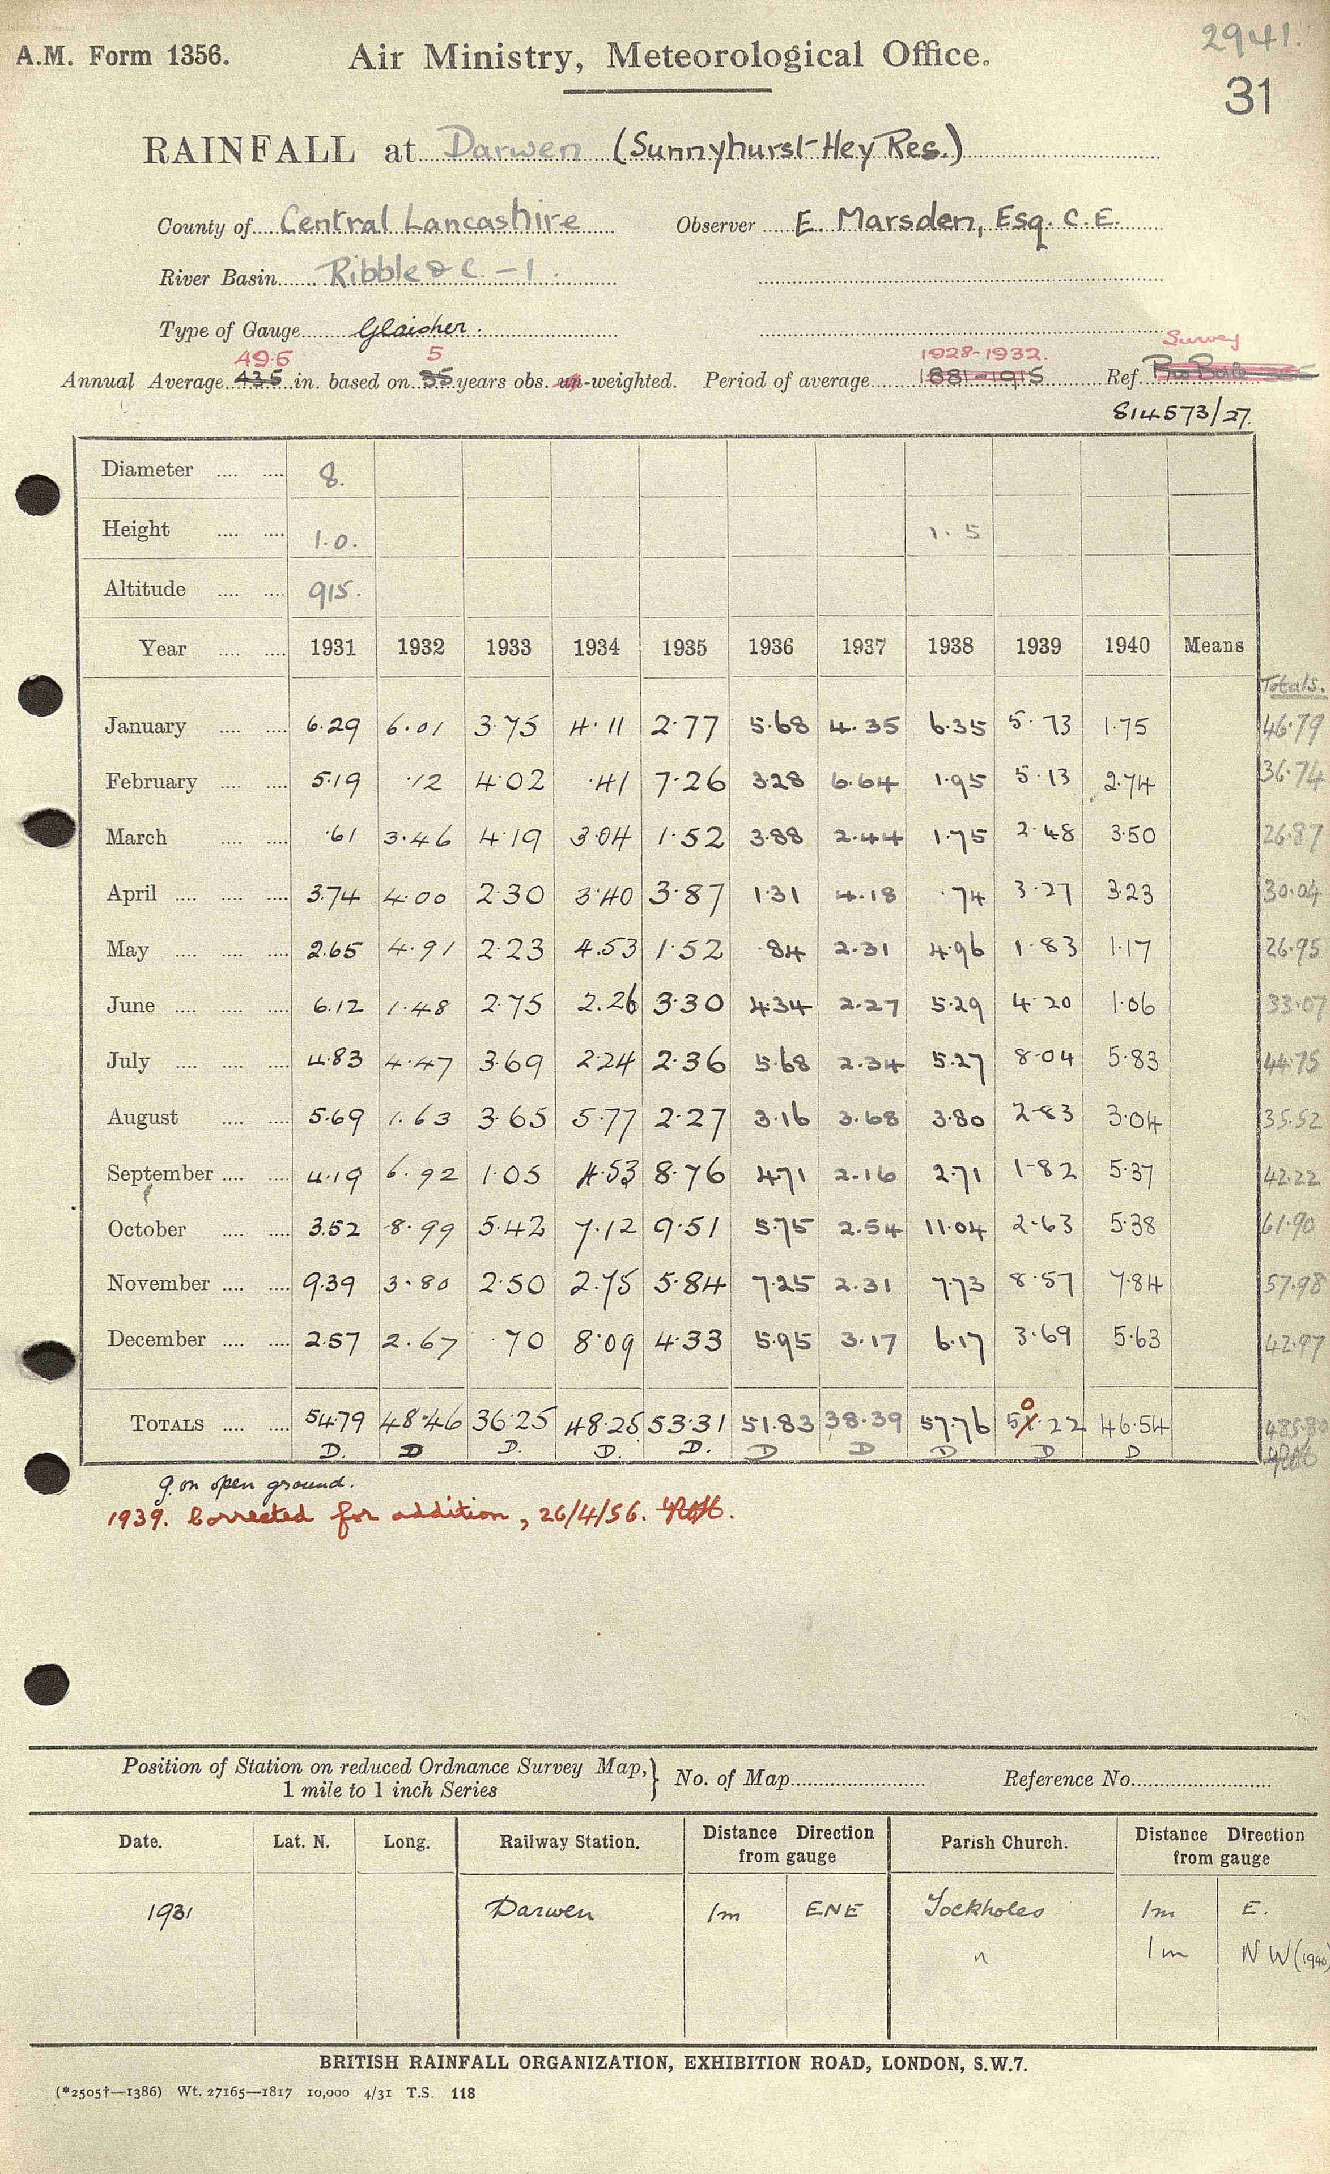 2941.
A.M. Form 1356. Air Ministry, Meteorological Office.
31
RAINFALL at Darwen (Sunnyhurst Hey Res.)
County of Central Lancashire Observer E. Marsden, Esq. C.E.
River Basin Ribble &c - 1.
Type of Gauge Glaisher.
49.6 5 1928-1932. Survey
Annual Average 43.5 in. based on 35 years obs. un-weighted. Period of average 1881-1915 Ref.
814573/27.
Diameter 8.
Height 1.0. 1.5
Altitude 915.
Year 1931 1932 1933 1934 1935 1936 1937 1938 1939 1940 Means
Totals.
January 6.29 6.01 3.75 4.11 2.77 5.68 4.35 6.35 5.73 1.75 46.79
February 5.19 .12 4.02 .41 7.26 3.28 6.64 1.95 5.13 2.74 36.74
March .61 3.46 4.19 3.04 1.52 3.88 2.44 1.75 2.48 3.50 26.87
April 3.74 4.00 2.30 3.40 3.87 1.31 4.18 .74 3.27 3.23 30.04
May 2.65 4.91 2.23 4.53 1.52 .84 2.31 4.96 1.83 1.17 26.95
June 6.12 1.48 2.75 2.26 3.30 4.34 2.27 5.29 4.20 1.06 33.07
July 4.83 4.47 3.69 2.24 2.36 5.68 2.34 5.27 8.04 5.83 44.75
August 5.69 1.63 3.65 5.77 2.27 3.16 3.68 3.80 2.83 3.04 35.52
September 4.19 6.92 1.05 4.53 8.76 4.71 2.16 2.71 1.82 5.37 42.22
October 3.52 8.99 5.42 7.12 9.51 5.75 2.54 11.04 2.63 5.38 61.90
November 9.39 3.80 2.50 2.75 5.84 7.25 2.31 7.73 8.57 7.84 57.98
December 2.57 2.67 .70 8.09 4.33 5.95 3.17 6.17 3.69 5.63 42.97
TOTALS 54.79 48.46 36.25 48.25 53.31 51.83 38.39 57.76 50.22 46.54 485.80
D. D D. D. D. D D D D D
g. on open ground.
1939. Corrected for addition, 26/4/56.
Position of Station on reduced Ordnance Survey Map,
1 mile to 1 inch Series } No. of Map Reference No.
Date. Lat. N. Long. Railway Station. Distance Direction from gauge Parish Church. Distance Direction from gauge
1931 Darwen 1m ENE Tockholes 1m E.
" 1m NW (1940)
BRITISH RAINFALL ORGANIZATION, EXHIBITION ROAD, LONDON, S.W.7.
(*2505†—1386) Wt. 27165—1817 10,000 4/31 T.S. 118